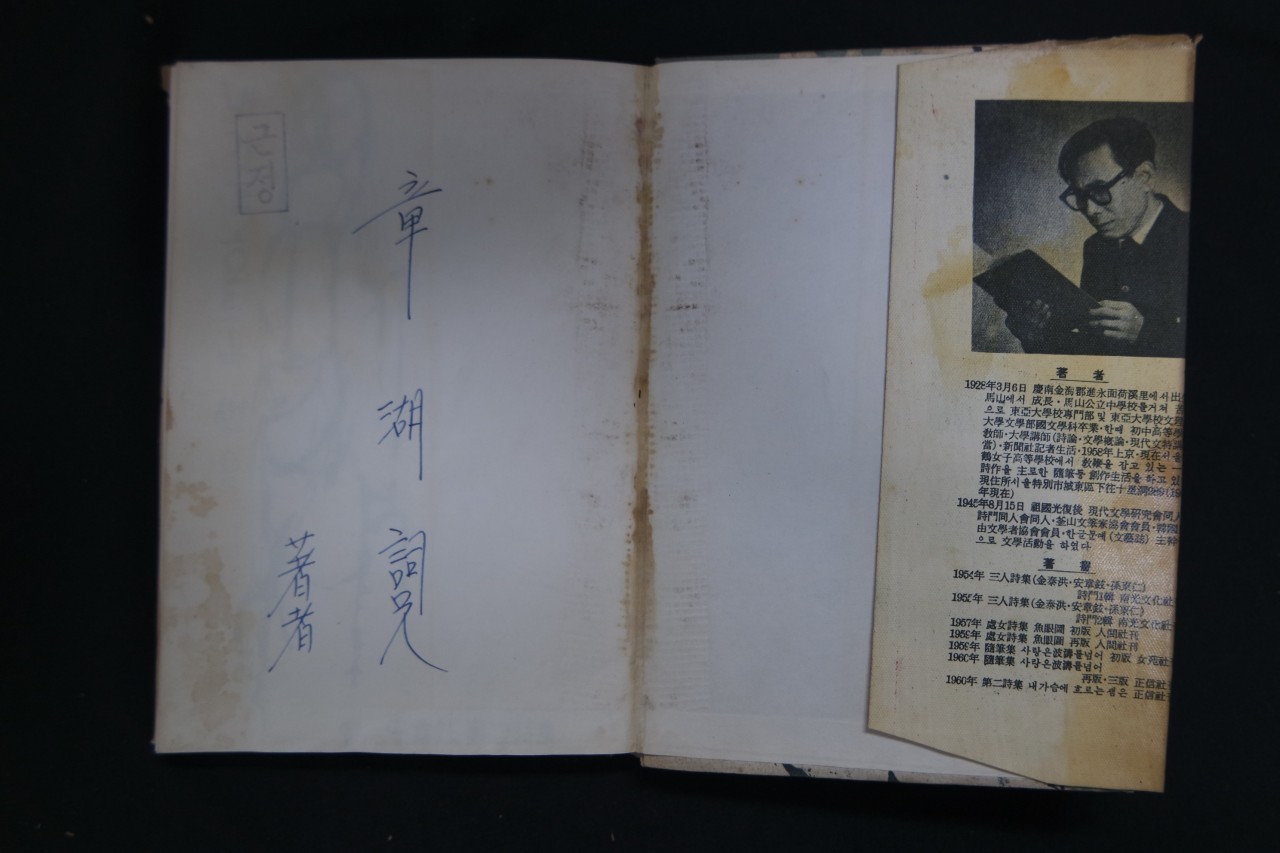 근정
章湖詞兄
著者
著者
1928年3月6日 慶南金海郡進永面荷溪里에서 出
馬山에서 成長·馬山公立中學校를거쳐
으로 東亞大學校專門部 및 東亞大學校文理
大學文學部國文學科卒業·한때 初中高等學
敎師·大學講師(詩論·文學槪論·現代文
當)·新聞社記者生活·1958年上京·現在서울
鶴女子高等學校에서 敎鞭을 잡고 있는 一
詩作을 主로한 隨筆等 創作生活을 하고 있
現住所서울特別市城東區下往十里洞989(19
年現在)
1945年8月15日 祖國光復後 現代文學硏究會同人
詩門同人會同人·釜山文筆家協會會員·韓國
由文學者協會會員·한글문예(文藝誌) 主幹
으로 文學活動을 하였다
著書
1954年 三人詩集(金泰洪·安章鉉·孫東仁)
詩門1輯 南光文化社
1955年 三人詩集(金泰洪·安章鉉·孫東仁)
詩門2輯 南光文化社
1957年 處女詩集 魚眼圖 初版 人間社刊
1959年 處女詩集 魚眼圖 再版 人間社刊
1959年 隨筆集 사랑은波濤를넘어 初版 女苑社
1960年 隨筆集 사랑은波濤를넘어
再版·三版 正信社
1960年 第二詩集 내가슴에 흐르는샘은 正信社